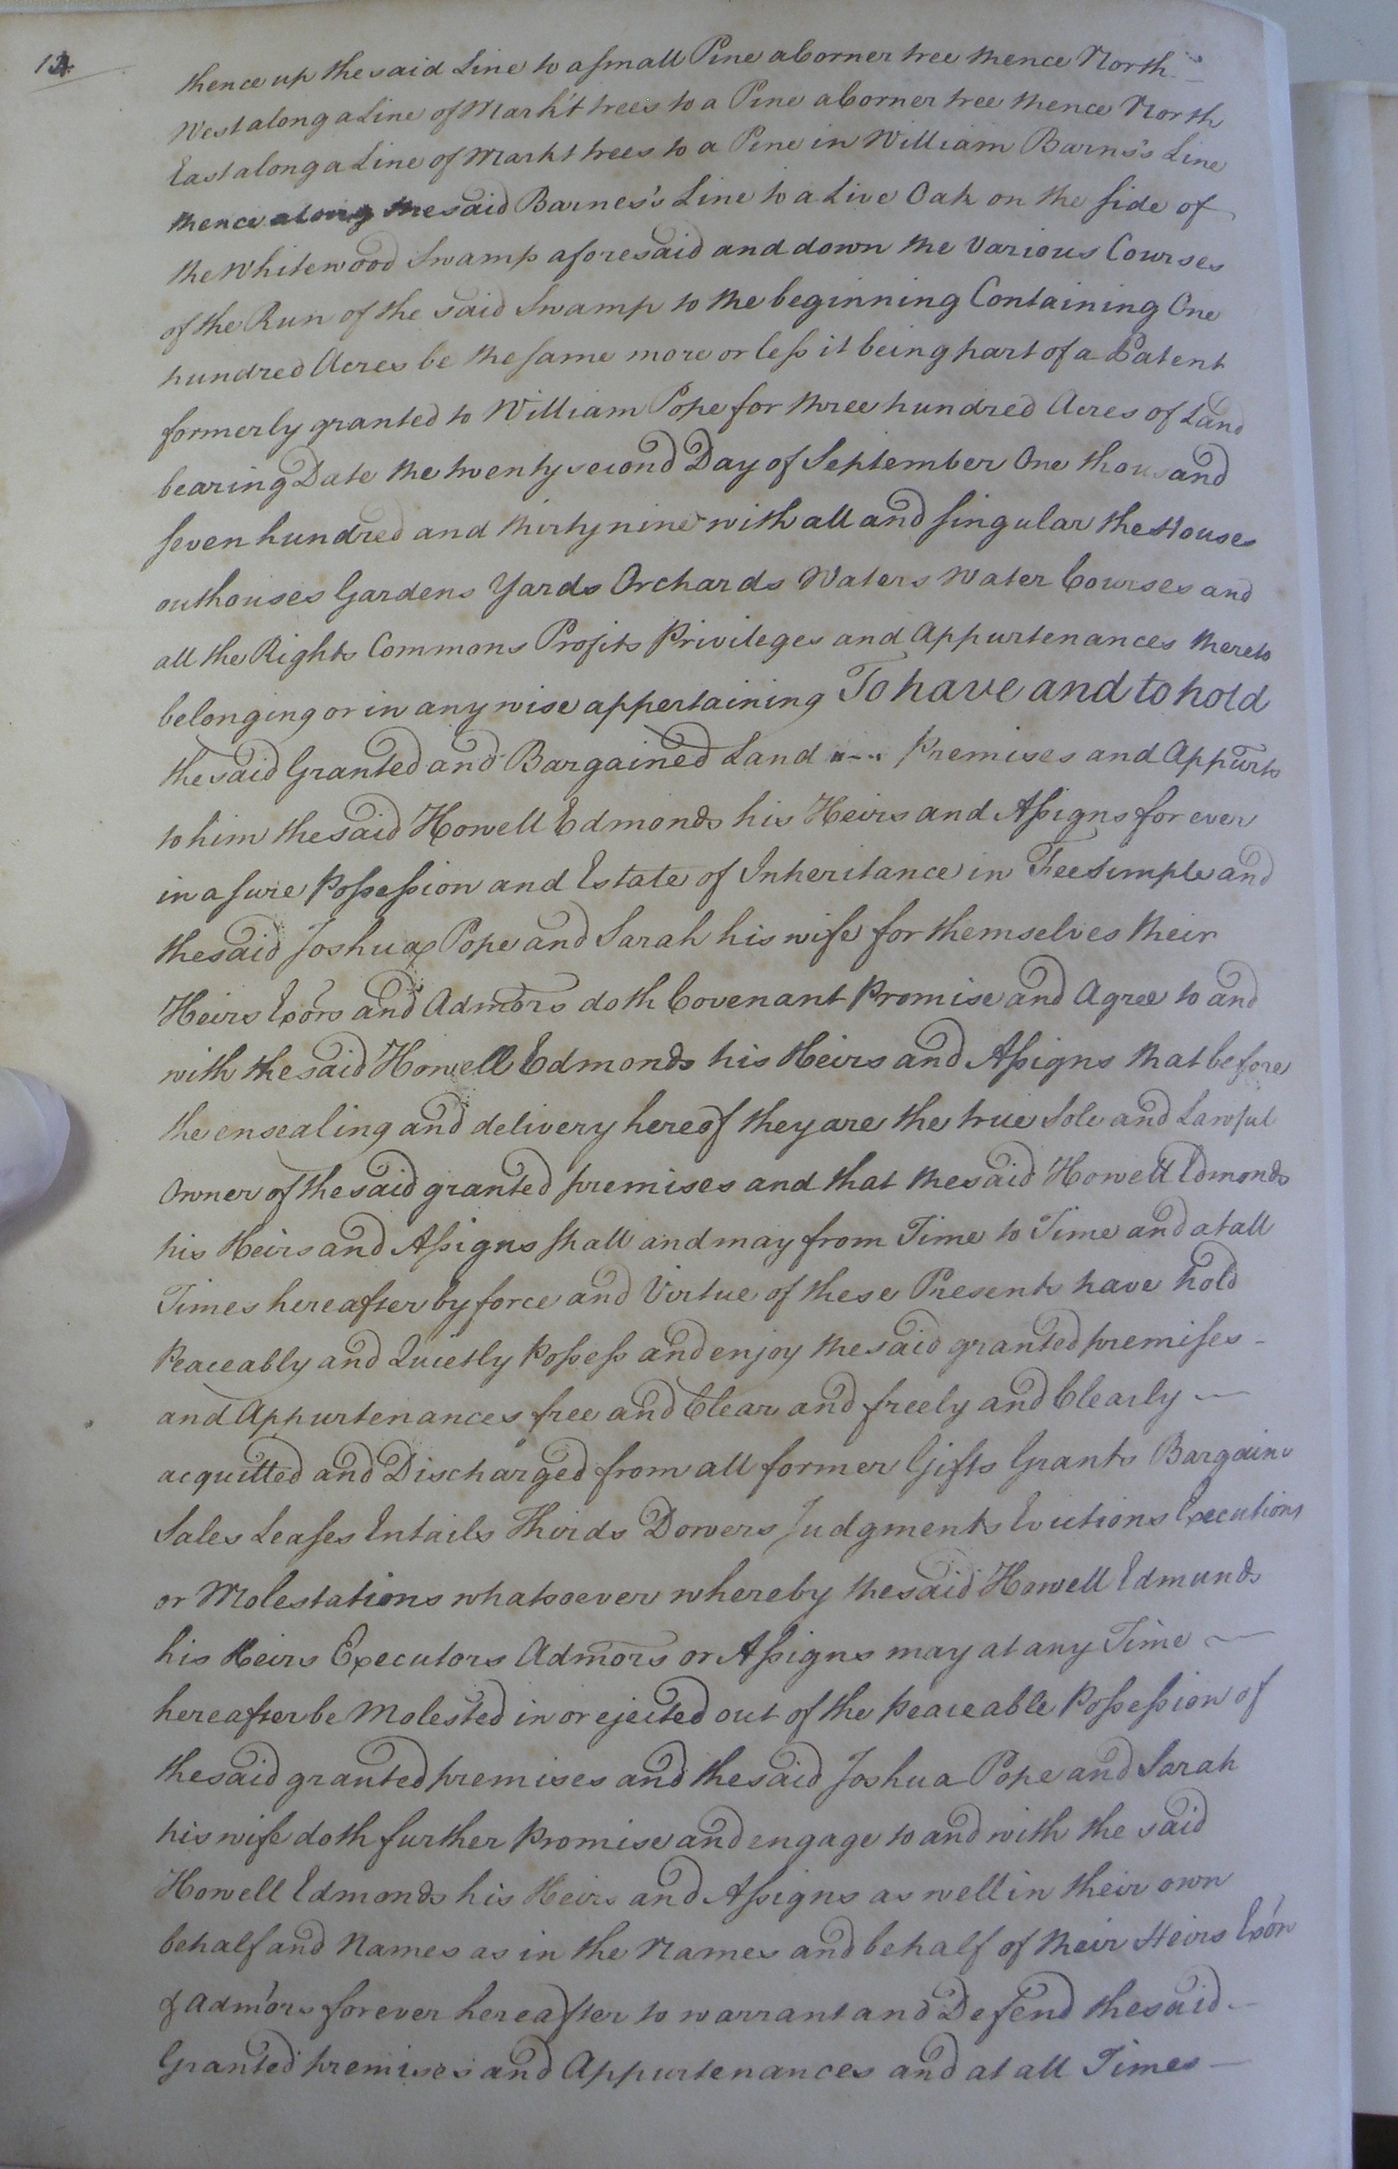 thence up the said Line to a small Pine a Corner tree thence North
West along a Line of Mark't trees to a Pine a Corner tree thence North
East along a Line of Markt trees to a Pine in William Barns's Line
thence along the said Barnes's Line to a Live Oak on the side of
the Whitewood Swamp aforesaid and down the Various Courses
of the Run of the said Swamp to the beginning Containing One
hundred Acres be the same more or less it being part of a Patent
formerly granted to William Pope for three hundred Acres of Land
bearing Date the twenty second Day of September One thousand
seven hundred and thirty nine with all and singular the Houses
outhouses Gardens Yards Orchards Waters Water Courses and
all the Rights Commons Profits Privileges and Appurtenances thereto
belonging or in any wise appertaining To have and to hold
the said Granted and Bargained Land Premises and Appurts
to him the said Howell Edmonds his Heirs and Assigns for ever
in a sure Possession and Estate of Inheritance in Fee Simple and
the said Joshua Pope and Sarah his wife for themselves their
Heirs Exors and Admors doth Covenant Promise and Agree to and
with the said Howell Edmonds his Heirs and Assigns that before
the ensealing and delivery hereof they are the true Sole and Lawful
Owner of the said granted premises and that the said Howell Edmonds
his Heirs and Assigns shall and may from Time to Time and at all
Times hereafter by force and Virtue of these Presents have hold
Peaceably and Quietly Possess and enjoy the said granted premises -
and Appurtenances free and Clear and freely and Clearly —
acquitted and Discharged from all former Gifts Grants Bargains
Sales Leases Entails Thirds Dowers Judgments Evictions Executions
or Molestations whatsoever whereby the said Howell Edmunds
his Heirs Executors Admors or Assigns may at any Time —
hereafter be Molested in or ejected out of the Peaceable Possession of
the said granted premises and the said Joshua Pope and Sarah
his wife doth further Promise and engage to and with the said
Howell Edmonds his Heirs and Assigns as well in their own
behalf and Names as in the Names and behalf of their Heirs Exors
& Admors forever hereafter to warrant and Defend the said -
Granted premises and Appurtenances and at all Times —